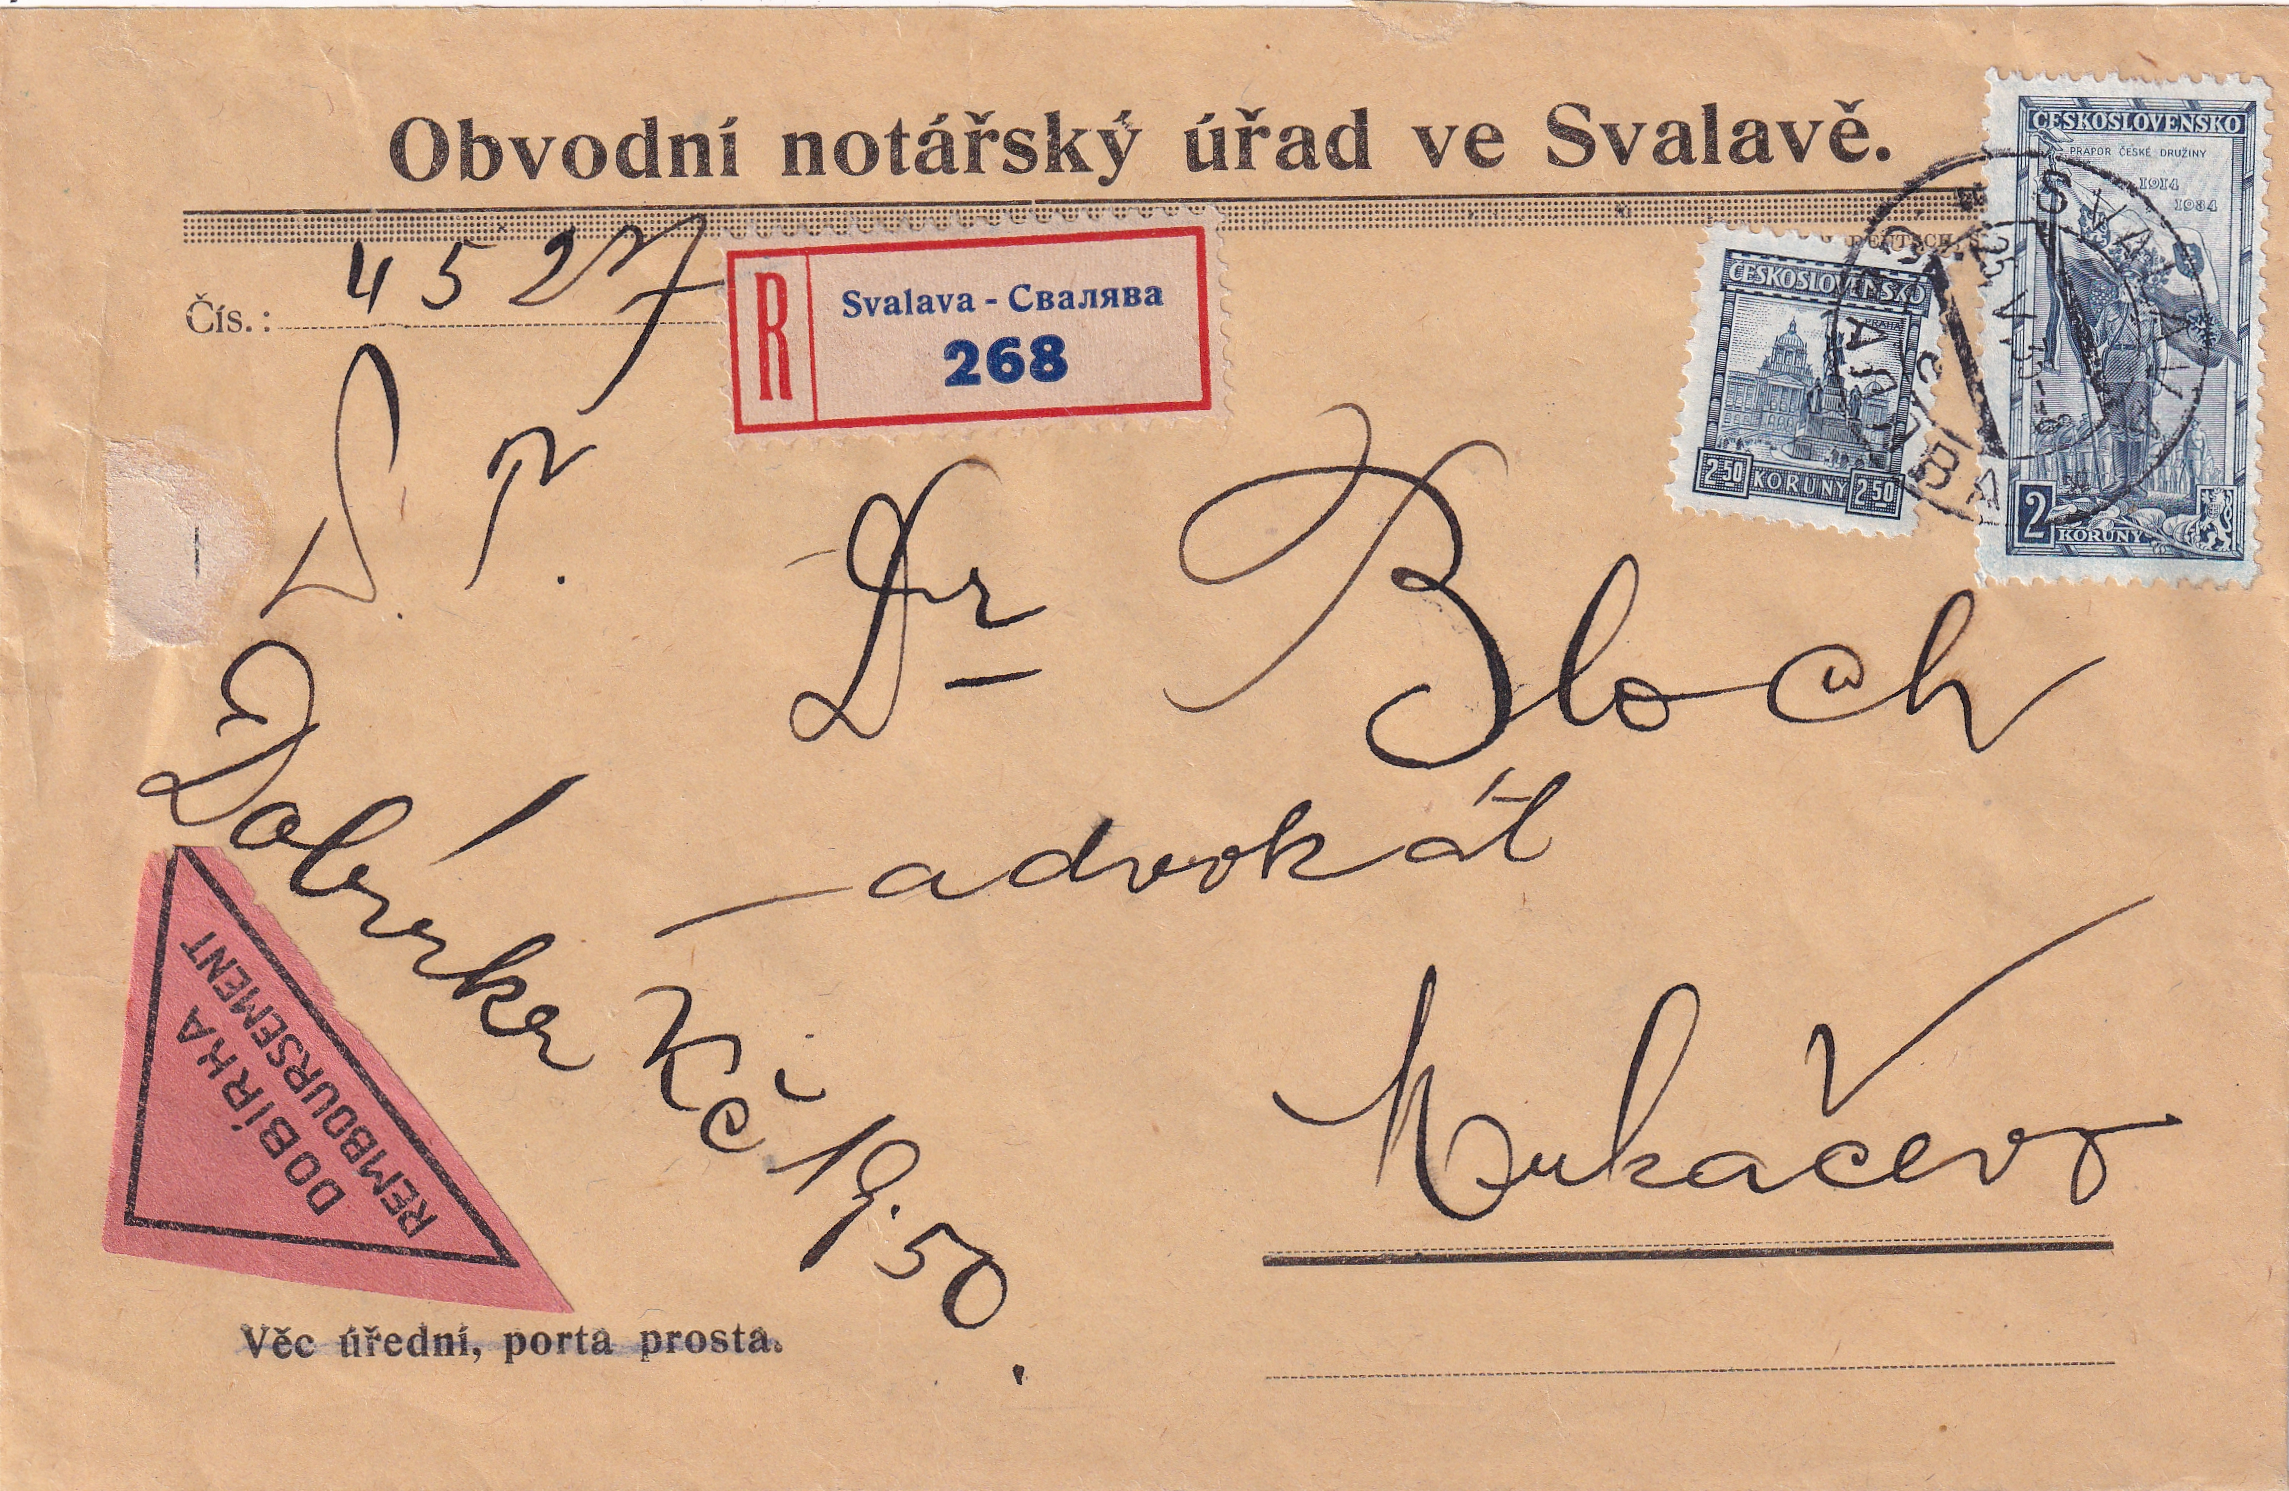 Obvodní notářský úřad ve Svalavě.
Čís.: 4527
R
Svalava - Свалява
268
ČESKOSLOVENSKO
PRAHA
2·50 KORUNY 2·50
ČESKOSLOVENSKO
PRAPOR ČESKÉ DRUŽINY
1914
1934
2
KORUNY
SVALAVA
СВАЛЯВА
P. T.
Dr Bloch
advokát
Mukačevo
Dobírka Kč 19.50
DOBÍRKA
REMBOURSEMENT
Věc úřední, porta prosta.